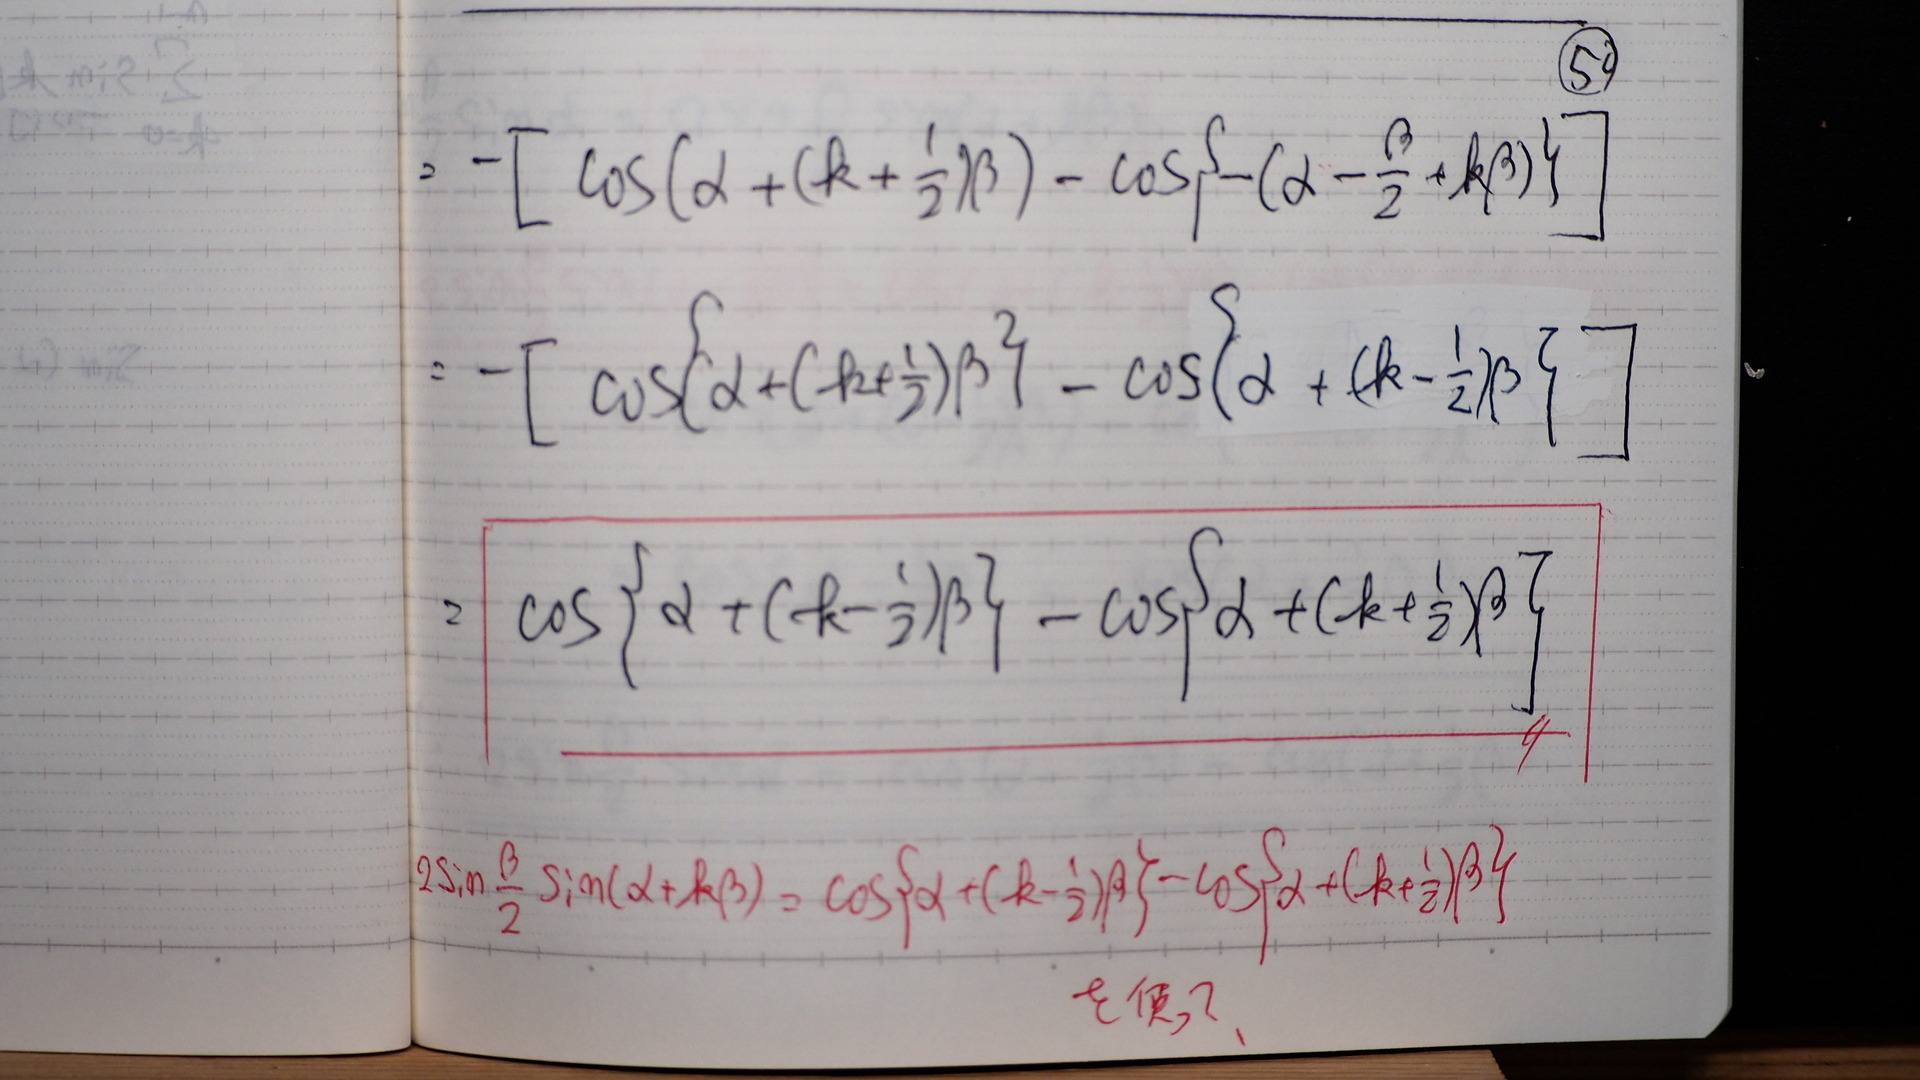 59
= -[ cos(α + (k + 1/2)β) - cos{-(α - β/2 + kβ)} ]
= -[ cos{α + (k + 1/2)β} - cos{α + (k - 1/2)β} ]
= cos{α + (k - 1/2)β} - cos{α + (k + 1/2)β}
2sin β/2 sin(α + kβ) = cos{α + (k - 1/2)β} - cos{α + (k + 1/2)β}
を使って、